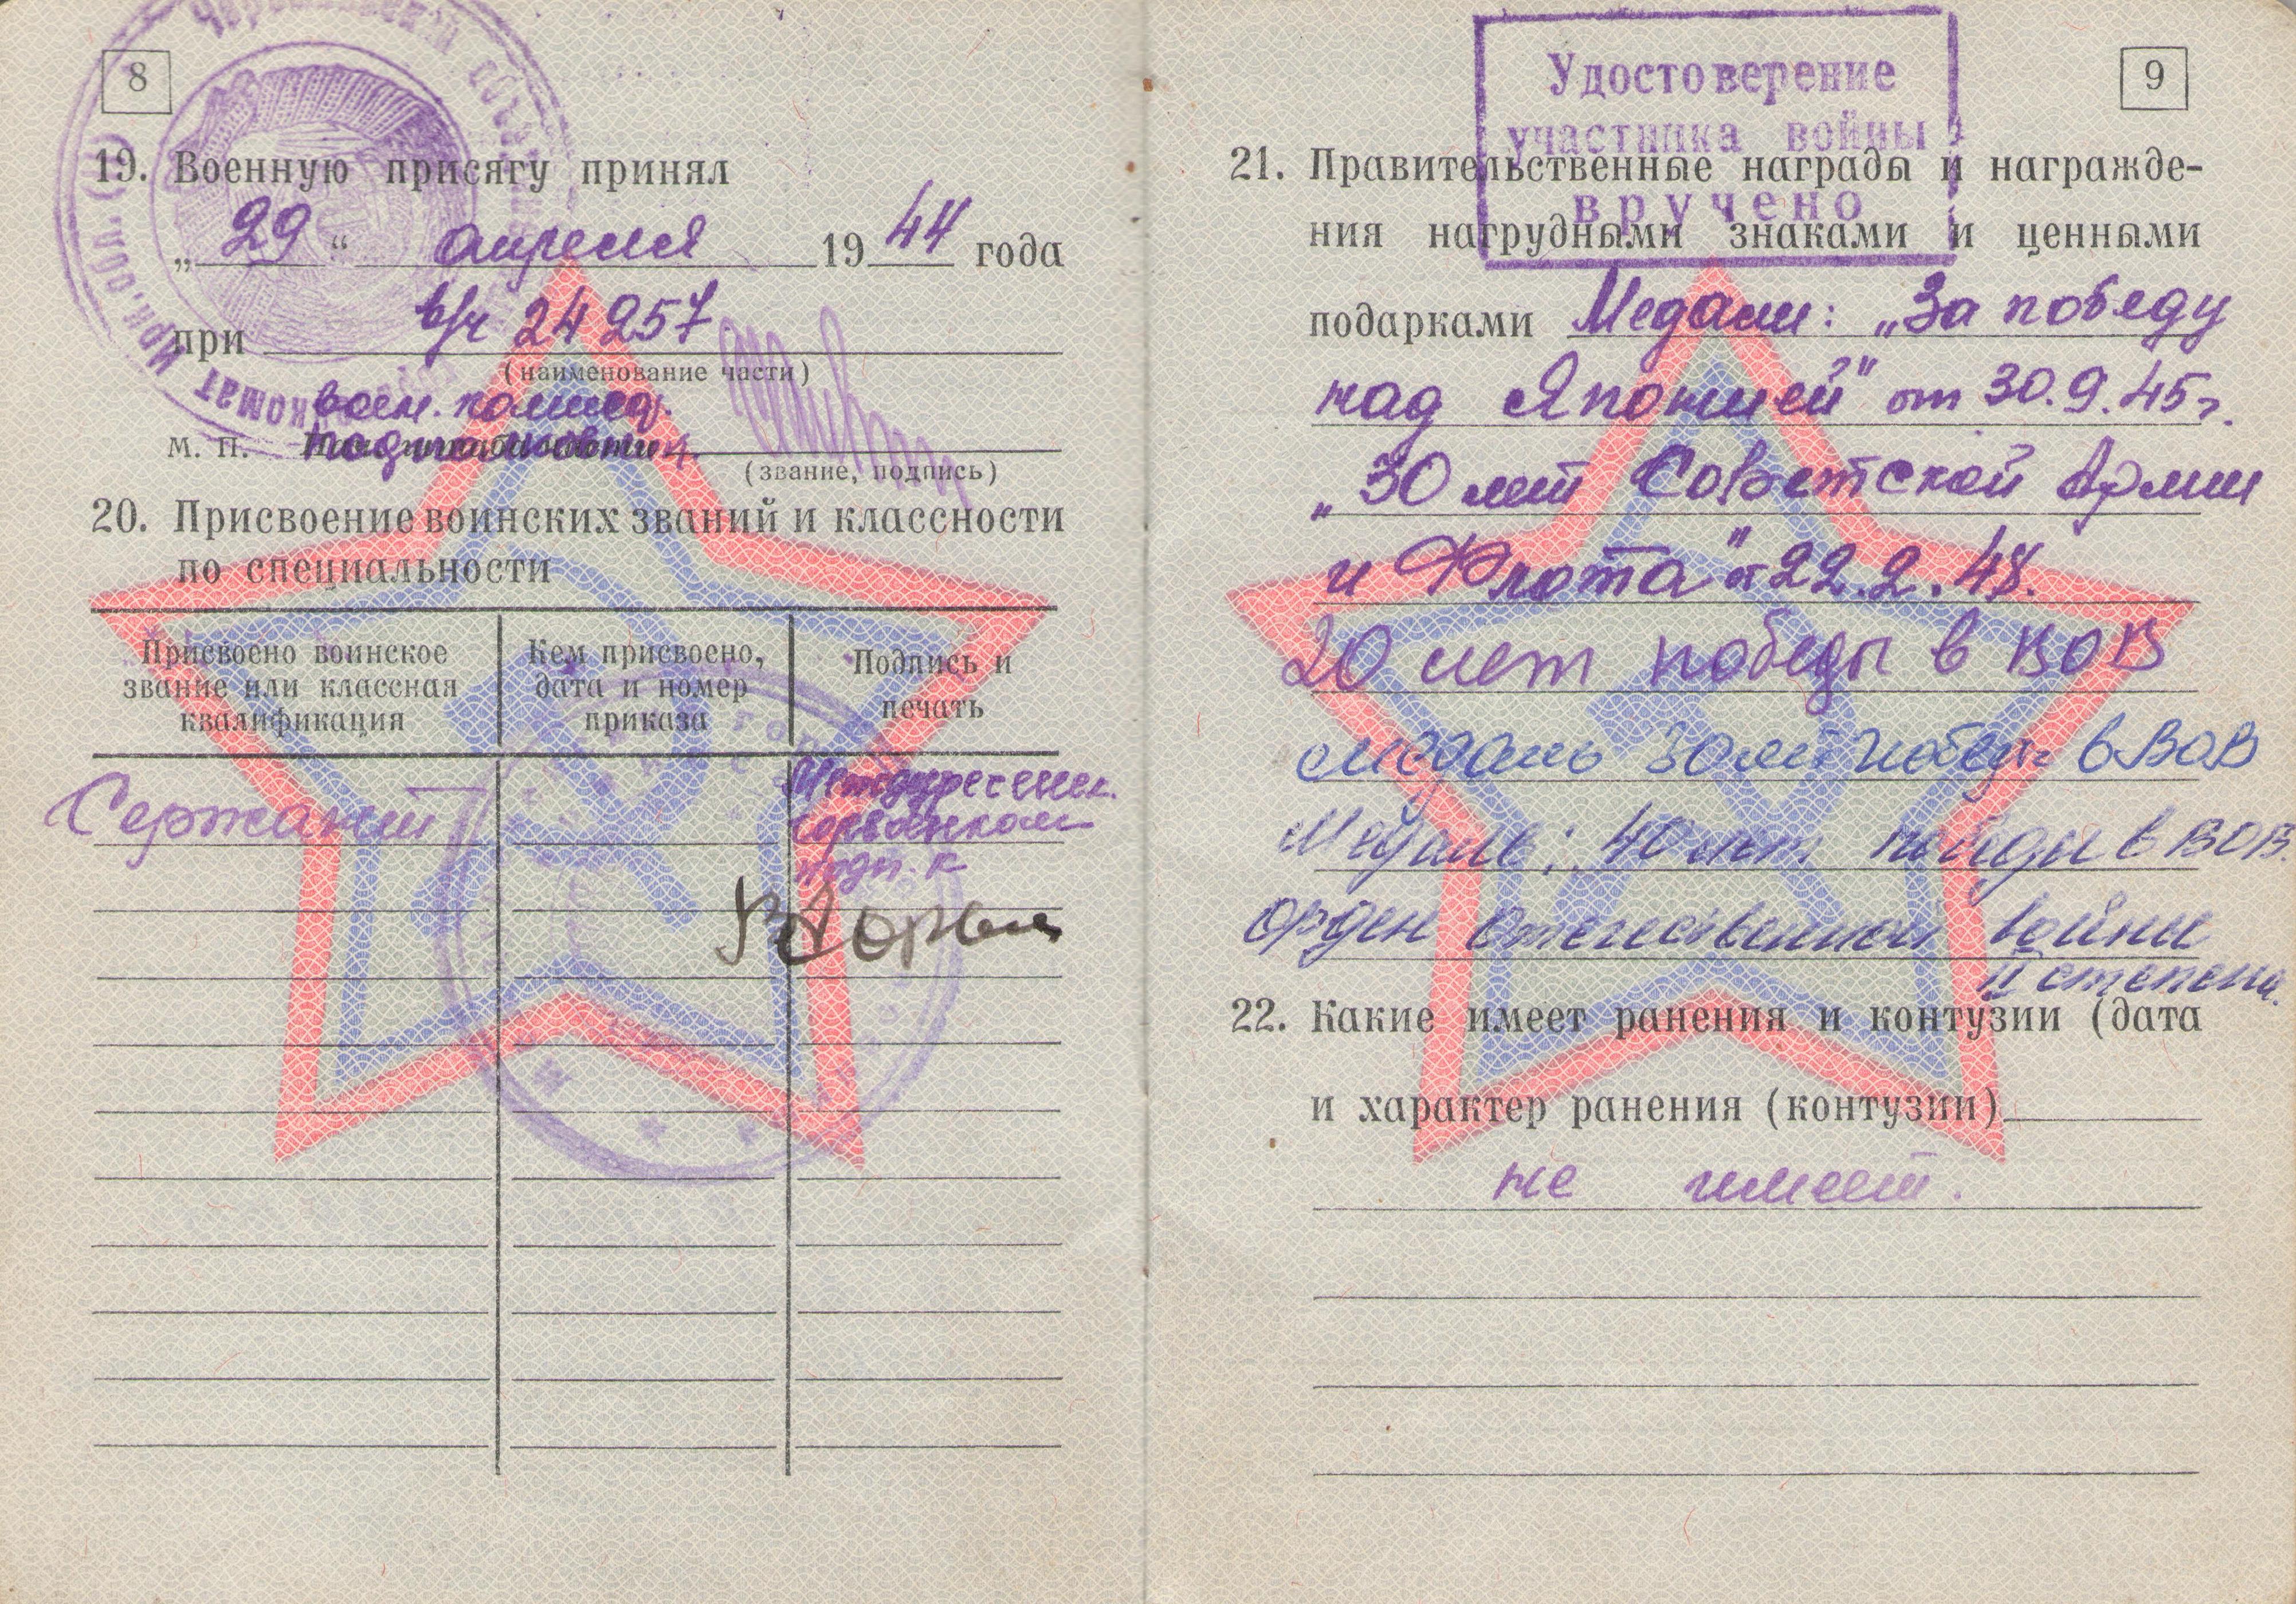 8
19. Военную присягу принял
„29“ апреля 1944 года
при в/ч 24257
(наименование части)
воен. комиссар.
м. п.
(звание, подпись)
20. Присвоение воинских званий и классности
по специальности
Присвоено воинское
звание или классная
квалификация
Кем присвоено,
дата и номер
приказа
Подпись и
печать
Сержант
Междуреченск.
горвоенком
подп. к
9
Удостоверение
участника войны
вручено
21. Правительственные награды и награжде-
ния нагрудными знаками и ценными
подарками Медали: „За победу
над Японией" от 30.9.45г.
„30 лет Советской Армии
и Флота" от 22.2.48.
20 лет победы в ВОВ
медаль 30 лет победы в ВОВ
Медаль: 40 лет победы в ВОВ.
орден Отечественной войны
II степени.
22. Какие имеет ранения и контузии (дата
и характер ранения (контузии)
не имеет.